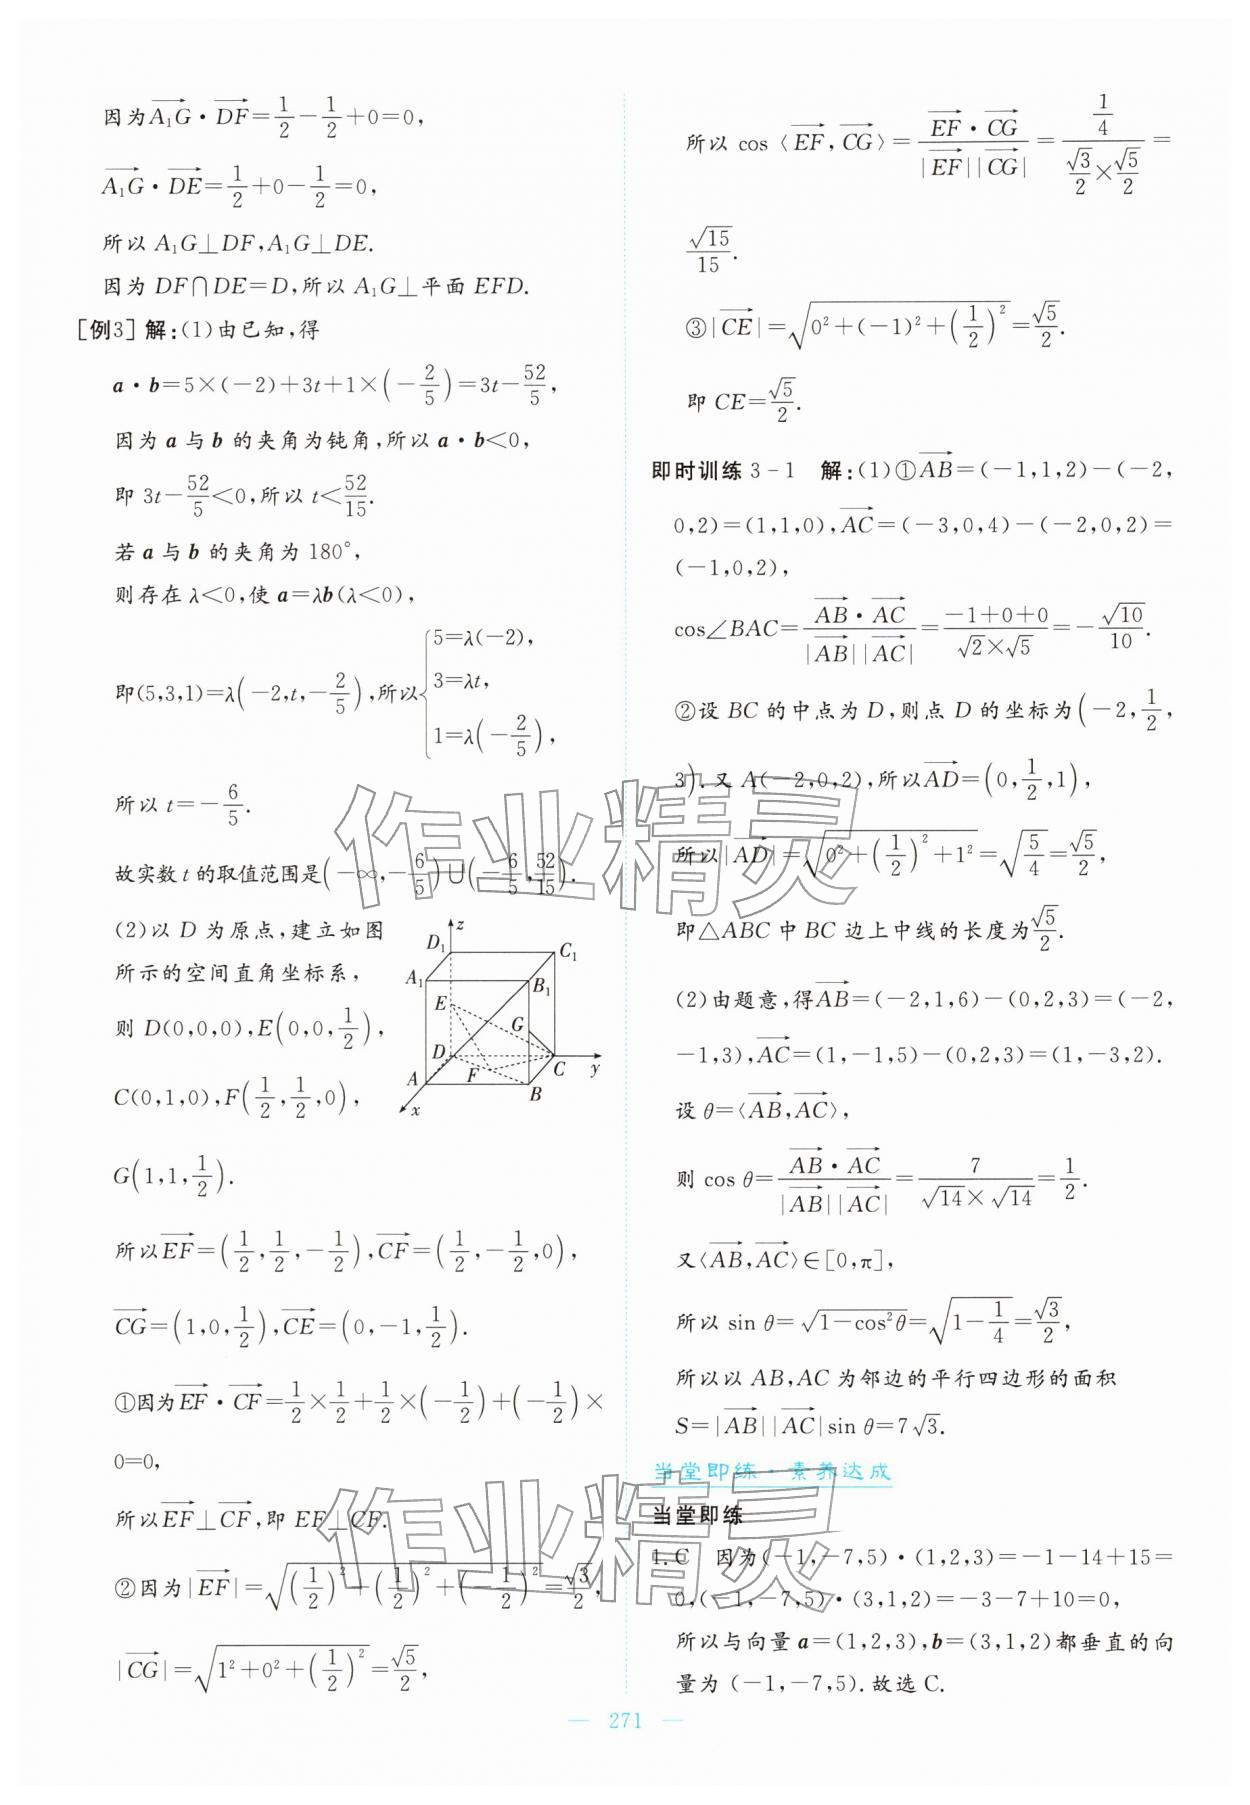 因为$\overrightarrow{A_1G}\cdot\overrightarrow{DF}=\frac{1}{2}-\frac{1}{2}+0=0$,
$\overrightarrow{A_1G}\cdot\overrightarrow{DE}=\frac{1}{2}+0-\frac{1}{2}=0$,
所以 A₁G⊥DF,A₁G⊥DE.
因为 DF∩DE=D,所以 A₁G⊥平面 EFD.
[例3] 解:(1)由已知,得
$a\cdot b=5\times(-2)+3t+1\times\left(-\frac{2}{5}\right)=3t-\frac{52}{5}$,
因为 a 与 b 的夹角为钝角,所以 a·b<0,
即 $3t-\frac{52}{5}<0$,所以 $t<\frac{52}{15}$.
若 a 与 b 的夹角为 180°,
则存在 λ<0,使 a=λb(λ<0),
即$(5,3,1)=\lambda\left(-2,t,-\frac{2}{5}\right)$,所以$\begin{cases}5=\lambda(-2),\\3=\lambda t,\\1=\lambda\left(-\frac{2}{5}\right),\end{cases}$
所以 $t=-\frac{6}{5}$.
故实数 t 的取值范围是$\left(-\infty,-\frac{6}{5}\right)\cup\left(-\frac{6}{5},\frac{52}{15}\right)$.
(2)以 D 为原点,建立如图
所示的空间直角坐标系,
则 D(0,0,0),$E\left(0,0,\frac{1}{2}\right)$,
C(0,1,0),$F\left(\frac{1}{2},\frac{1}{2},0\right)$,
$G\left(1,1,\frac{1}{2}\right)$.
z
D₁
C₁
A₁
B₁
E
G
D
A
F
C
y
B
x
所以$\overrightarrow{EF}=\left(\frac{1}{2},\frac{1}{2},-\frac{1}{2}\right)$,$\overrightarrow{CF}=\left(\frac{1}{2},-\frac{1}{2},0\right)$,
$\overrightarrow{CG}=\left(1,0,\frac{1}{2}\right)$,$\overrightarrow{CE}=\left(0,-1,\frac{1}{2}\right)$.
①因为$\overrightarrow{EF}\cdot\overrightarrow{CF}=\frac{1}{2}\times\frac{1}{2}+\frac{1}{2}\times\left(-\frac{1}{2}\right)+\left(-\frac{1}{2}\right)\times$
0=0,
所以$\overrightarrow{EF}\perp\overrightarrow{CF}$,即 EF⊥CF.
②因为$|\overrightarrow{EF}|=\sqrt{\left(\frac{1}{2}\right)^2+\left(\frac{1}{2}\right)^2+\left(-\frac{1}{2}\right)^2}=\frac{\sqrt{3}}{2}$,
$|\overrightarrow{CG}|=\sqrt{1^2+0^2+\left(\frac{1}{2}\right)^2}=\frac{\sqrt{5}}{2}$,
所以 $\cos\langle\overrightarrow{EF},\overrightarrow{CG}\rangle=\frac{\overrightarrow{EF}\cdot\overrightarrow{CG}}{|\overrightarrow{EF}||\overrightarrow{CG}|}=\frac{\frac{1}{4}}{\frac{\sqrt{3}}{2}\times\frac{\sqrt{5}}{2}}=$
$\frac{\sqrt{15}}{15}$.
③$|\overrightarrow{CE}|=\sqrt{0^2+(-1)^2+\left(\frac{1}{2}\right)^2}=\frac{\sqrt{5}}{2}$.
即 $CE=\frac{\sqrt{5}}{2}$.
即时训练 3-1 解:(1)①$\overrightarrow{AB}$=(-1,1,2)-(-2,
0,2)=(1,1,0),$\overrightarrow{AC}$=(-3,0,4)-(-2,0,2)=
(-1,0,2),
$\cos\angle BAC=\frac{\overrightarrow{AB}\cdot\overrightarrow{AC}}{|\overrightarrow{AB}||\overrightarrow{AC}|}=\frac{-1+0+0}{\sqrt{2}\times\sqrt{5}}=-\frac{\sqrt{10}}{10}$.
②设 BC 的中点为 D,则点 D 的坐标为$\left(-2,\frac{1}{2},\right.$
$\left.3\right)$.又 A(-2,0,2),所以$\overrightarrow{AD}=\left(0,\frac{1}{2},1\right)$,
所以$|\overrightarrow{AD}|=\sqrt{0^2+\left(\frac{1}{2}\right)^2+1^2}=\sqrt{\frac{5}{4}}=\frac{\sqrt{5}}{2}$,
即△ABC 中 BC 边上中线的长度为$\frac{\sqrt{5}}{2}$.
(2)由题意,得$\overrightarrow{AB}$=(-2,1,6)-(0,2,3)=(-2,
-1,3),$\overrightarrow{AC}$=(1,-1,5)-(0,2,3)=(1,-3,2).
设 $\theta=\langle\overrightarrow{AB},\overrightarrow{AC}\rangle$,
则 $\cos\theta=\frac{\overrightarrow{AB}\cdot\overrightarrow{AC}}{|\overrightarrow{AB}||\overrightarrow{AC}|}=\frac{7}{\sqrt{14}\times\sqrt{14}}=\frac{1}{2}$.
又$\langle\overrightarrow{AB},\overrightarrow{AC}\rangle\in[0,\pi]$,
所以 $\sin\theta=\sqrt{1-\cos^2\theta}=\sqrt{1-\frac{1}{4}}=\frac{\sqrt{3}}{2}$,
所以以 AB,AC 为邻边的平行四边形的面积
$S=|\overrightarrow{AB}||\overrightarrow{AC}|\sin\theta=7\sqrt{3}$.
当堂即练·素养达成
当堂即练
1.C 因为(-1,-7,5)·(1,2,3)=-1-14+15=
0,(-1,-7,5)·(3,1,2)=-3-7+10=0,
所以与向量 a=(1,2,3),b=(3,1,2)都垂直的向
量为 (-1,-7,5).故选 C.
— 271 —
作业精灵
作业精灵